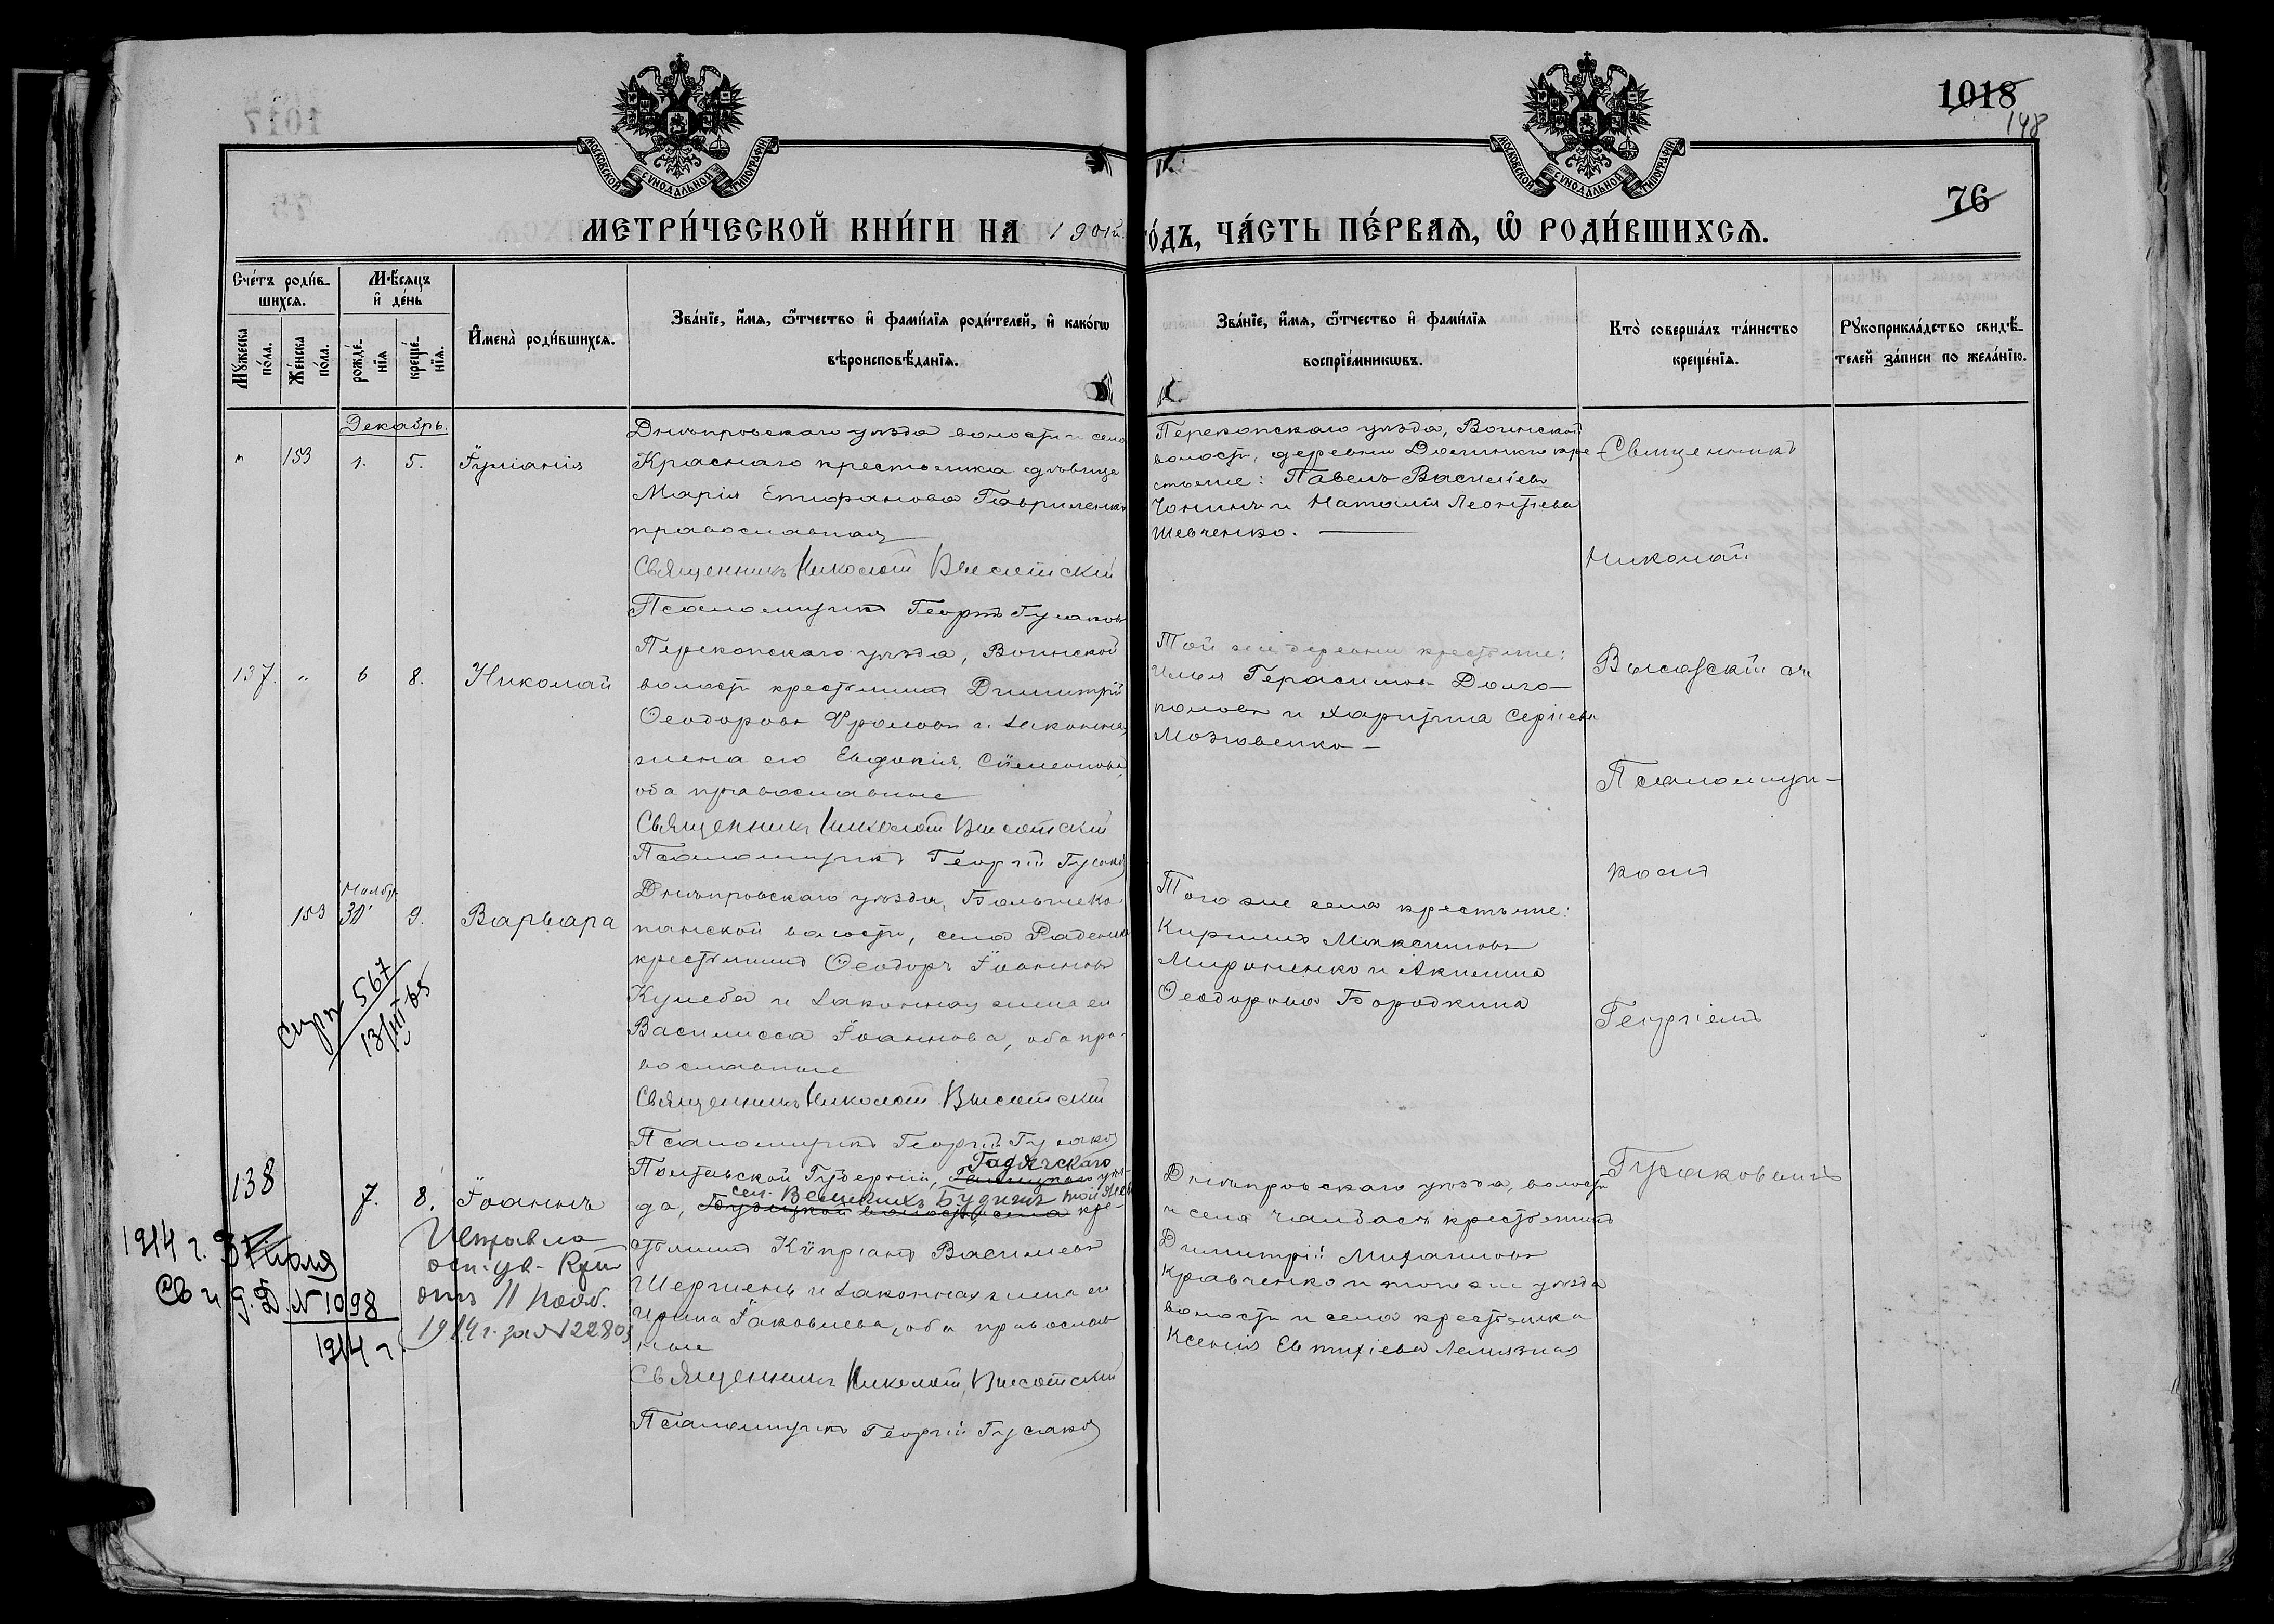 1017
1018
148
МОСКОВСКОЙ СѴНОДАЛЬНОЙ ТИПОГРАФІИ
МОСКОВСКОЙ СѴНОДАЛЬНОЙ ТИПОГРАФІИ
76
МЕТРИ́ЧЕСКОЙ КНИ́ГИ НА 1901й. ГО́ДЪ, ЧА́СТЬ ПЕ́РВАЯ, Ѿ РОДИ́ВШИХСЯ.
Сче́тъ роди́в-
шихся.
Мѣ́сяцъ
и҆ де́нь
Мꙋ́жеска по́ла.
Же́нска по́ла.
рожде́-
нїя
креще́-
нїя.
И҆мена̀ роди́вшихся.
Зва́нїе, и҆́мя, ѻ҆́тчество и҆ фами́лїя роди́телей, и҆ како́гѡ
вѣроисповѣ́данїя.
Зва́нїе, и҆́мя, ѻ҆́тчество и҆ фами́лїя
воспрїе́мникѡвъ.
Кто̀ соверша́лъ та́инство
креще́нїя.
Рꙋкоприкла́дство свидѣ́-
телей за́писи по жела́нїю.
Декабрь.
" 153 1. 5. Іуліанія
Днѣпровскаго уѣзда волости и села
Краснаго крестьянка дѣвица
Марія Епифанова Гавриленко
православная
Священникъ Николай Высотскій
Псаломщикъ Георгій Гусаковъ
Перекопскаго уѣзда, Воинской
волости, деревни Долинки кре-
стьяне: Павелъ Василіевъ
Чонинъ и Наталія Леонтіева
Шевченко.
Священникъ
Николай
Высотскій съ
Псаломщи-
комъ
Георгіемъ
Гусаковымъ
137. " 6 8. Николай
Перекопскаго уѣзда, Воинской
волости крестьянинъ Димитрій
Ѳеодоровъ Фроловъ и законная
жена его Евдокія Сѵмеонова,
оба православные
Священникъ Николай Высотскій
Псаломщикъ Георгій Гусаковъ
Той же деревни крестьяне:
Илья Герасимовъ Долго-
половъ и Харитина Сергіева
Мозговенко
Ноябр.
153 30 9. Варвара
Днѣпровскаго уѣзда, Большеко
панской волости, села Раденска
крестьянинъ Ѳеодоръ Іоанновъ
Кулеба и законная жена его
Василисса Іоаннова, оба пра-
вославные
Священникъ Николай Высотскій
Псаломщикъ Георгій Гусаковъ
Того же села крестьяне:
Кириллъ Максимовъ
Мироненко и Акилина
Ѳеодорова Бородкина
567
13/III 65
138 7. 8. Іоаннъ
Полтавской Губерніи, Гадячскаго уѣз-
да, сел. Великихъ Будищъ той же
Будищской волости, села кре-
стьянинъ Кѵпріанъ Василіевъ
Шершень и законная жена его
Ирина Іаковлева, оба православ
ные
Священникъ Николай Высотскій
Псаломщикъ Георгій Гусаковъ
Днѣпровскаго уѣзда, волости
и села Чалбасъ крестьянинъ
Димитрій Михаиловъ
Кравченко и того же уѣзда
волости и села крестьянка
Ксенія Евтихіева
1914 г. 3 Іюля
Св и д. Д. № 1098
1914 г
отъ 11 Нояб.
1914 г. за № 22803